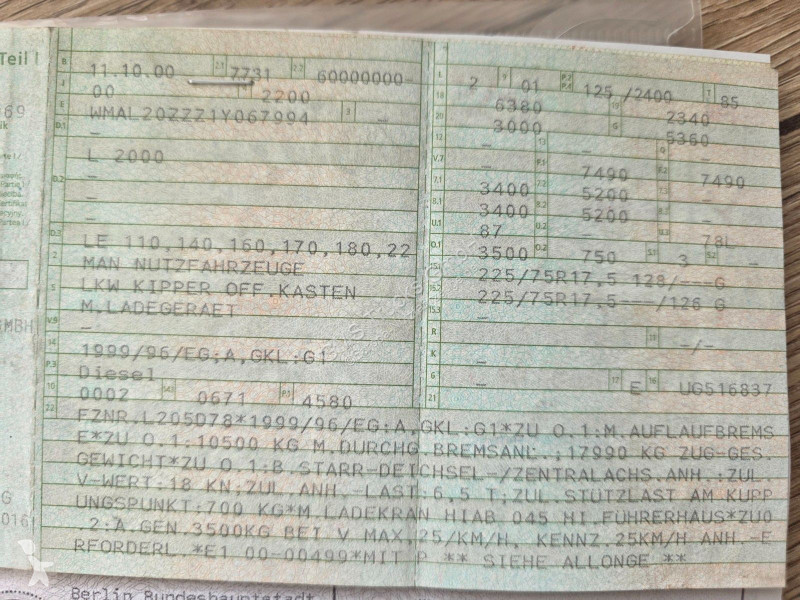 Teil I
B 11.10.00 2.1 7731 2.2 60000000-
J 00 2200
E WMAL20ZZZ1Y067994 3 –
D.1 –
L 2000
D.2 –
–
–
D.3 LE 110,140,160,170,180,22
2 MAN NUTZFAHRZEUGE
5 LKW KIPPER OFF.KASTEN
M.LADEGERAET
V.9 –
14 1999/96/EG;A,GKL:G1
P.3 Diesel
10 0002 14.1 0671 P.1 4580
L 2 9 01 P.2 P.4 125 /2400 T 85
18 6380 19 2340
20 3000 G 5360
12 – 13 – Q –
V.7 – F.1 7490 F.2 7490
7.1 3400 7.2 5200 7.3 –
8.1 3400 8.2 5200 8.3 –
U.1 87 U.2 – U.3 78L
O.1 3500 O.2 750 S.1 3 S.2 –
15.1 225/75R17,5 128/---G
15.2 225/75R17,5---/126 G
15.3 –
R – 11 -/-
K –
6 – 17 E 16 UG516837
21 –
22 FZNR.L205D78*1999/96/EG:A,GKL:G1*ZU O.1:M.AUFLAUFBREMS
E*ZU O.1:10500 KG M.DURCHG.BREMSANL.;17990 KG ZUG-GES.
GEWICHT*ZU O.1:B.STARR-DEICHSEL-/ZENTRALACHS.ANH.:ZUL.
V-WERT:18 KN;ZUL.ANH.-LAST:6,5 T;ZUL.STÜTZLAST AM KUPP
UNGSPUNKT:700 KG*M.LADEKRAN HIAB 045 HI.FÜHRERHAUS*ZUO
.2:A.GEN.3500KG BEI V MAX.25/KM/H, KENNZ.25KM/H ANH.-E
RFORDERL.*E1 00-00499*MIT P ** SIEHE ALLONGE **
Berlin Bundeshauptstadt